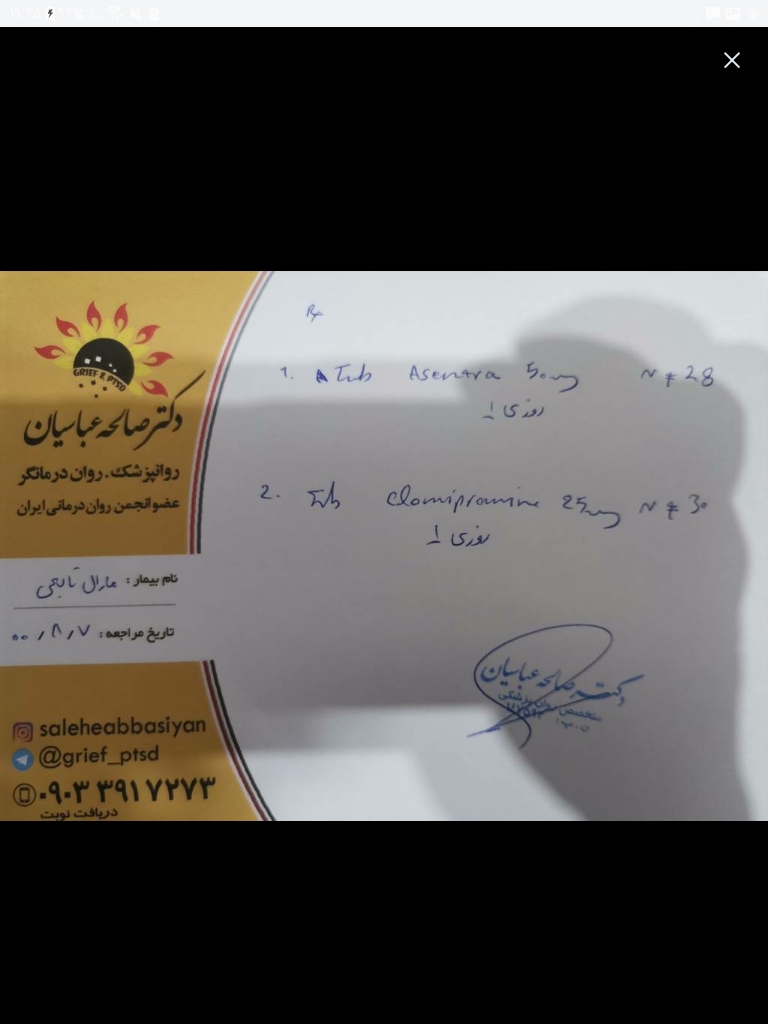 ۱۹:۳۵
۹۲%
GRIEF & PTSD
دکتر صالحه عباسیان
روانپزشک. روان درمانگر
عضو انجمن روان درمانی ایران
نام بیمار : مارال
تاریخ مراجعه : ۰۰/۸/۷
saleheabbasiyan
@grief_ptsd
۰۹۰۳ ۳۹۱۷۲۷۳
دریافت نوبت
Rx
1. Tab Asentra 50mg N ≠ 28
روزی ۱
2. Tab Clomipramine 25mg N ≠ 30
روزی ۱
دکتر صالحه عباسیان
متخصص روان پزشکی